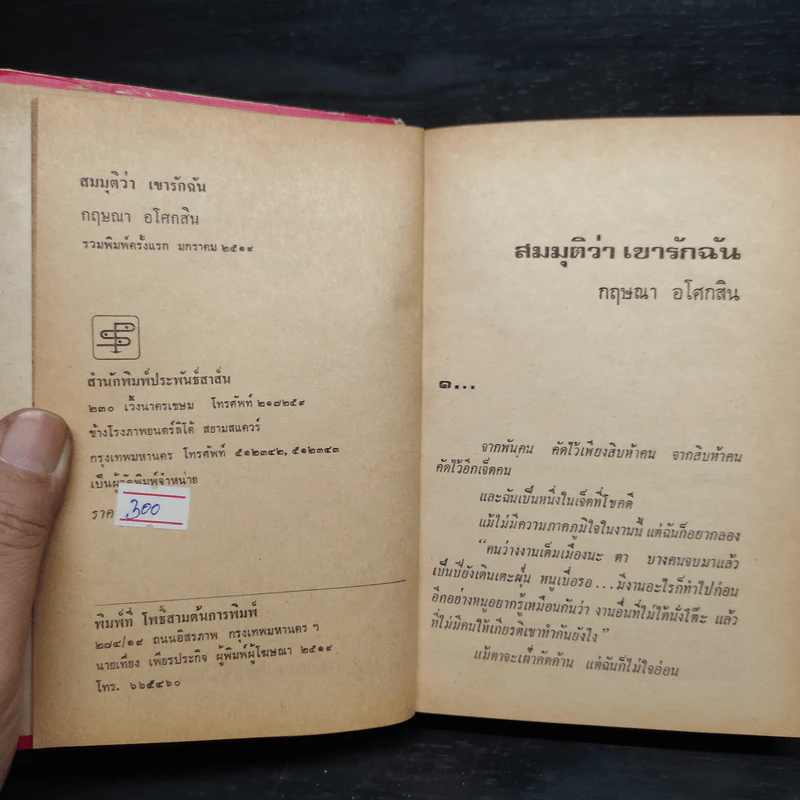 สมมุติว่า เขารักฉัน
กฤษณา อโศกสิน
รวมพิมพ์ครั้งแรก มกราคม ๒๕๑๙
สำนักพิมพ์ประพันธ์สาส์น
๒๓๐ เวิ้งนาครเขษม โทรศัพท์ ๒๑๘๒๕๙
ข้างโรงภาพยนตร์ลิโด้ สยามสแควร์
กรุงเทพมหานคร โทรศัพท์ ๕๑๒๓๔๒, ๕๑๒๓๔๓
เป็นผู้จัดพิมพ์จำหน่าย
ราค 300
พิมพ์ที่ โพธิ์สามต้นการพิมพ์
๒๘๔/๑๙ ถนนอิสรภาพ กรุงเทพมหานคร ฯ
นายเที่ยง เพียรประกิจ ผู้พิมพ์ผู้โฆษณา ๒๕๑๙
โทร. ๖๖๕๔๖๐
สมมุติว่า เขารักฉัน
กฤษณา อโศกสิน
๑...
จากพันคน คัดไว้เพียงสิบห้าคน จากสิบห้าคน
คัดไว้อีกเจ็ดคน
และฉันเป็นหนึ่งในเจ็ดที่โชคดี
แม้ไม่มีความภาคภูมิใจในงานนี้ แต่ฉันก็อยากลอง
“คนว่างงานเต็มเมืองนะ ตา บางคนจบมาแล้ว
เป็นปียังเดินเตะฝุ่น หนูเบื่อรอ ...มีงานอะไรก็ทำไปก่อน
อีกอย่างหนูอยากรู้เหมือนกันว่า งานอื่นที่ไม่ได้นั่งโต๊ะ แล้ว
ที่ไม่มีคนให้เกียรติเขาทำกันยังไง”
แม้ตาจะเฝ้าคัดค้าน แต่ฉันก็ไม่ใจอ่อน